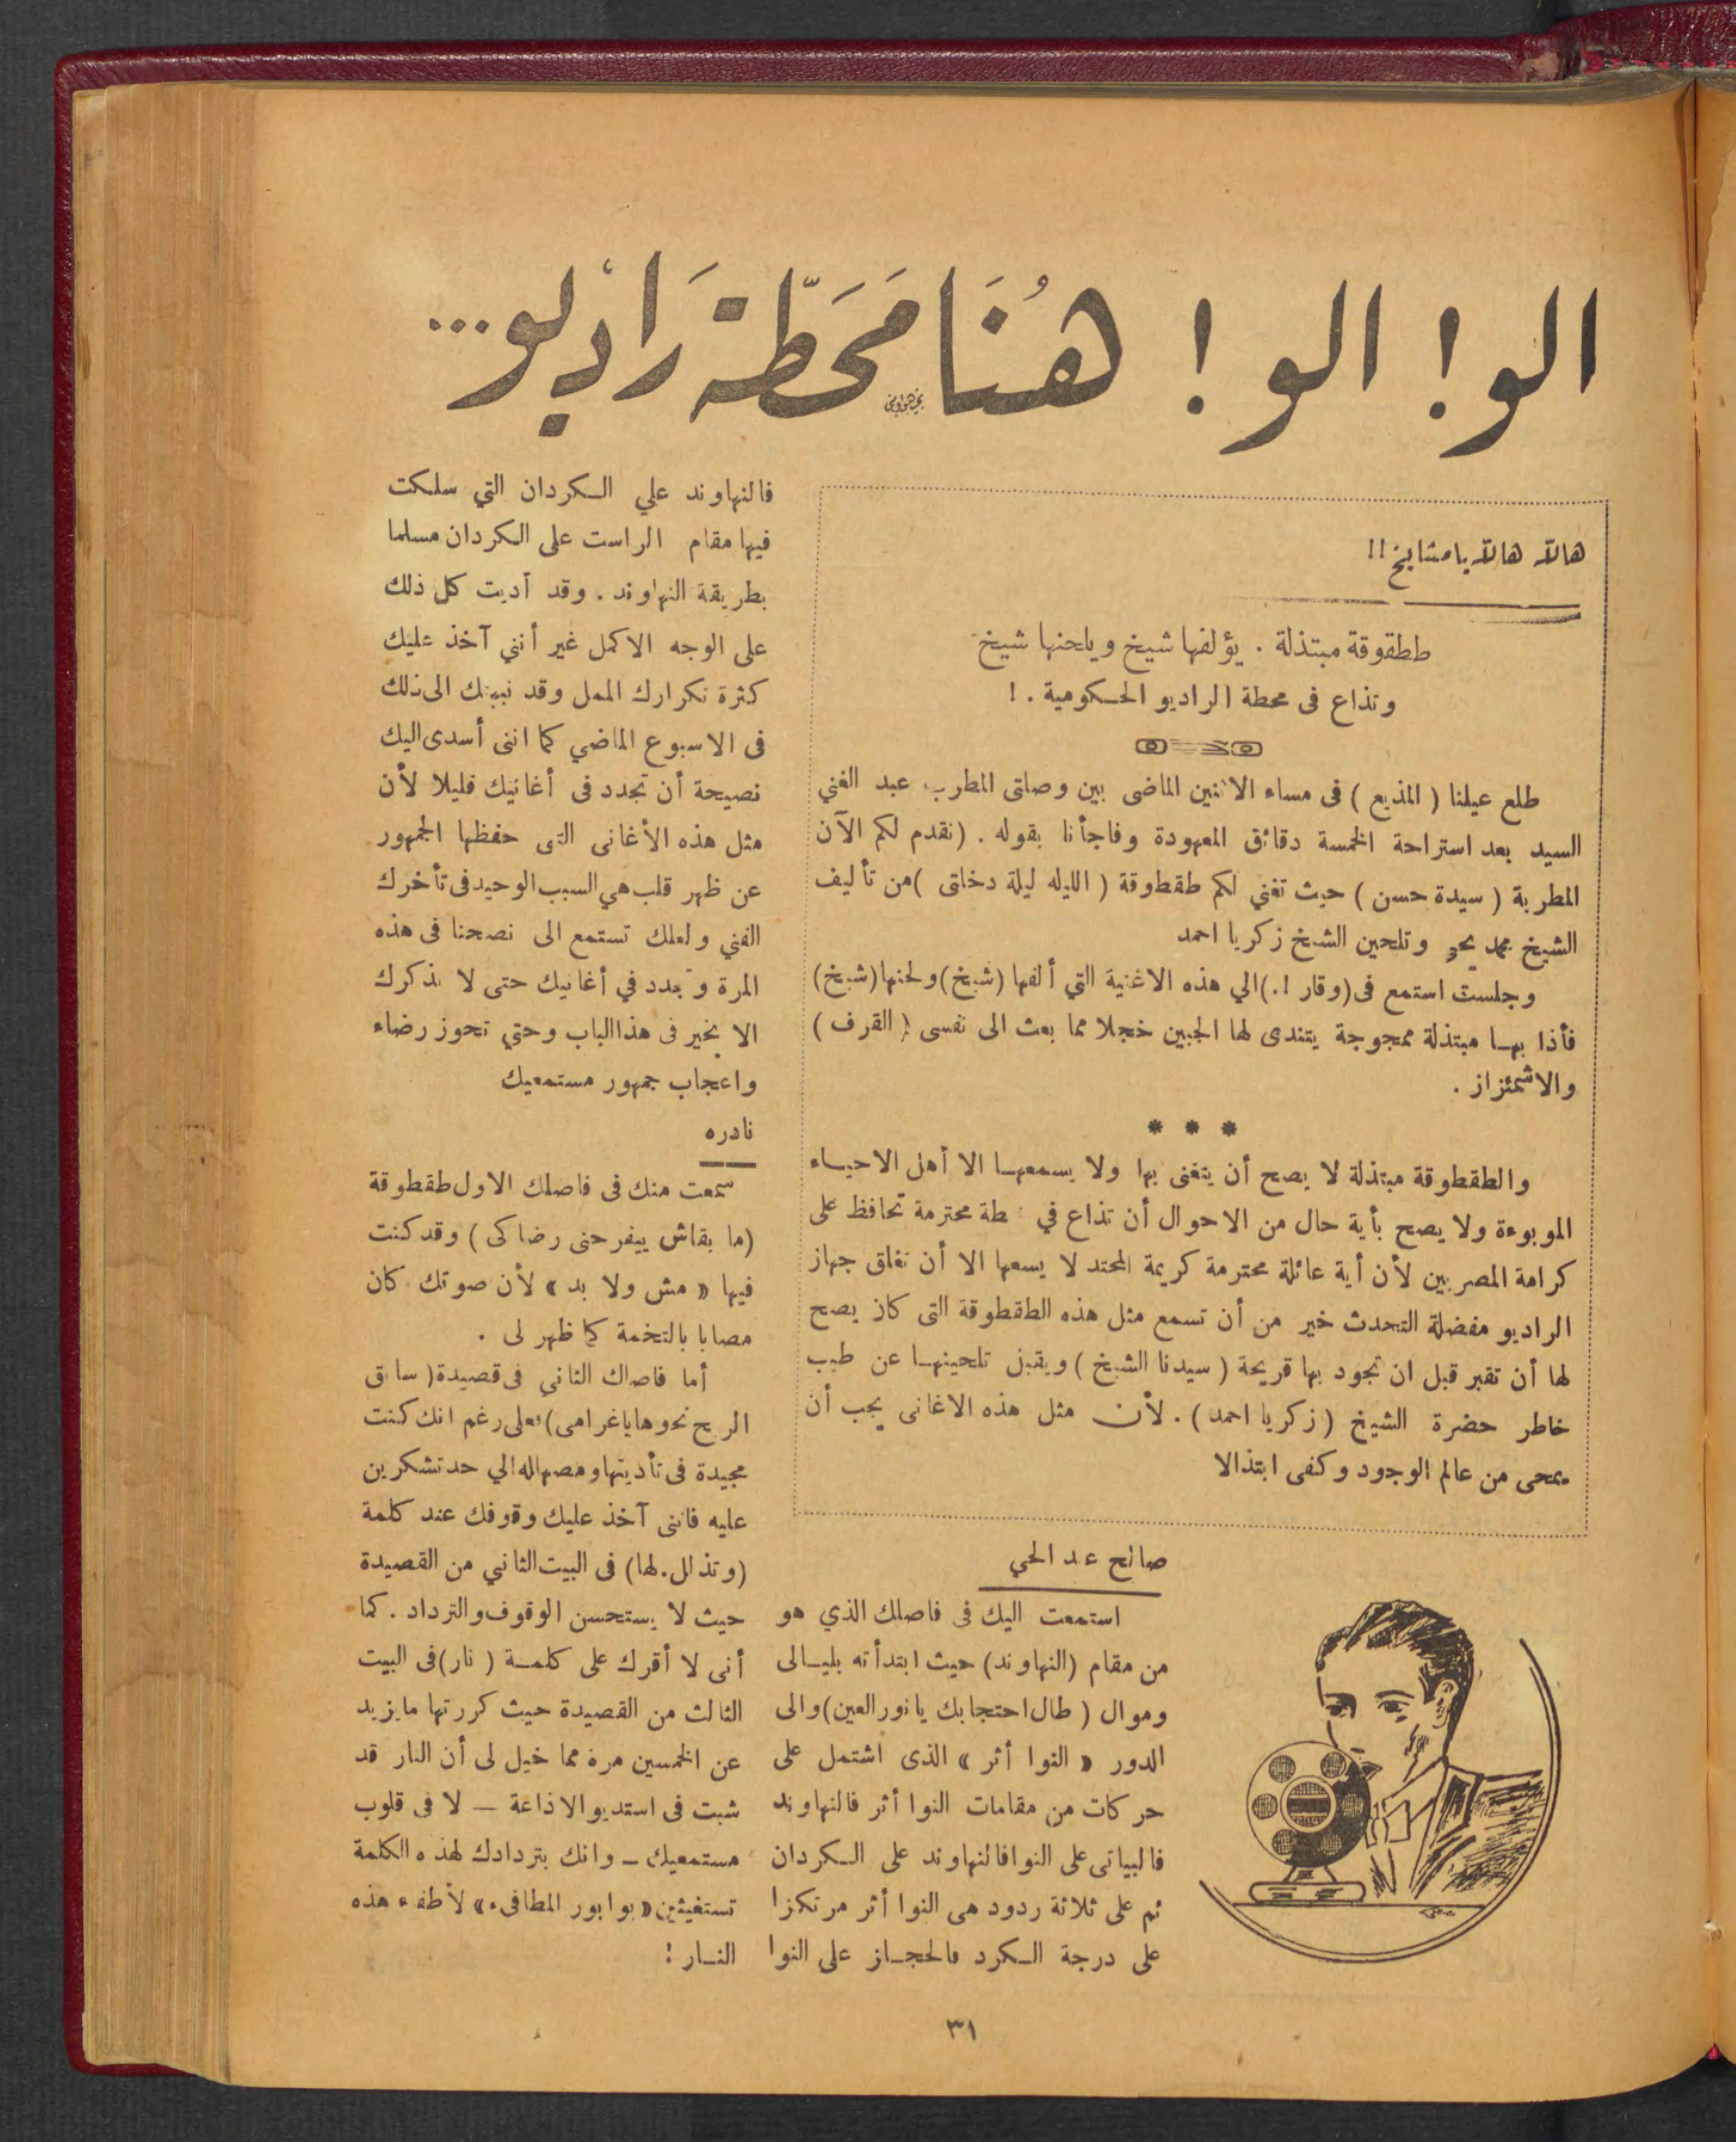 الو! الو! هُنَا مَحَطّة رَاديو...
هالله هالله يا مشايخ!!
طقطوقة مبتذلة . يؤلفها شيخ ويلحنها شيخ
وتذاع فى محطة الراديو الحكومية . !
طلع علينا ( المذيع ) فى مساء الاثنين الماضى بين وصلتى المطرب عبد الغني
السيد بعد استراحة الخمسة دقائق المعهودة وفاجأنا بقوله . (نقدم لكم الآن
المطربة ( سيدة حسن ) حيث تغني لكم طقطوقة ( الليله ليلة دخلتى )من تأليف
الشيخ محمد يحيى وتلحين الشيخ زكريا احمد
وجلست استمع فى (وقار ! .) الي هذه الاغنية التي ألفها (شيخ) ولحنها (شيخ)
فأذا بها مبتذلة ممجوجة يتندى لها الجبين خجلا مما بعث الى نفسى ( القرف )
والاشمئزاز .
* * *
والطقطوقة مبتذلة لا يصح أن يتغنى بها ولا يسمعها الا أهل الاحياء
الموبوءة ولا يصح بأية حال من الاحوال أن تذاع في طة محترمة تحافظ على
كرامة المصريين لأن أية عائلة محترمة كريمة المحتد لا يسعها الا أن تغلق جهاز
الراديو مفضلة التحدث خير من أن تسمع مثل هذه الطقطوقة التى كان يصح
لها أن تقبر قبل ان تجود بها قريحة ( سيدنا الشيخ ) ويقبل تلحينها عن طيب
خاطر حضرة الشيخ ( زكريا احمد ) . لأن مثل هذه الاغانى يجب أن
يمحى من عالم الوجود وكفى ابتذالا
صالح عبد الحي
استمعت اليك فى فاصلك الذي هو
من مقام (النهاوند) حيث ابتدأته بليالى
وموال ( طال احتجابك يا نور العين) والى
الدور « النوا أثر » الذى اشتمل على
حركات من مقامات النوا أثر فالنهاوند
فالبياتى على النوا فالنهاوند على الكردان
ثم على ثلاثة ردود هى النوا أثر مرتكزا
على درجة الكرد فالحجاز على النوا
فالنهاوند علي الكردان التي سلكت
فيها مقام الراست على الكردان مسلما
بطريقة النهاوند . وقد أديت كل ذلك
على الوجه الاكمل غير أنني آخذ عليك
كثرة تكرارك الممل وقد نبهتك الى ذلك
فى الاسبوع الماضي كما اننى أسدى اليك
نصيحة أن تجدد فى أغانيك قليلا لأن
مثل هذه الأغانى التى حفظها الجمهور
عن ظهر قلب هي السبب الوحيد فى تأخرك
الفني ولعلك تستمع الى نصحنا فى هذه
المرة وتجدد في أغانيك حتى لا نذكرك
الا بخير فى هذا الباب وحتي تحوز رضاء
واعجاب جمهور مستمعيك
نادره
سمعت منك فى فاصلك الاول طقطوقة
(ما بقاش يفرحنى رضاكى ) وقد كنت
فيها « مش ولا بد » لأن صوتك كان
مصابا بالتخمة كما ظهر لى .
أما فاصلك الثاني فى قصيدة ( سابق
الريح نحوها يا غرامى ) فعلى رغم انك كنت
مجيدة فى تأديتها ومصهالله الي حد تشكرين
عليه فاننى آخذ عليك وقوفك عند كلمة
(وتذلل . لها) فى البيت الثاني من القصيدة
حيث لا يستحسن الوقوف والترداد . كما
أنى لا أقرك على كلمة ( نار ) فى البيت
الثالث من القصيدة حيث كررتها ما يزيد
عن الخمسين مرة مما خيل لى أن النار قد
شبت فى استديو الاذاعة — لا فى قلوب
مستمعيك — وانك بتردادك لهذه الكلمة
تستغيثين « بوابور المطافىء » لأطفاء هذه
النار !
٣١